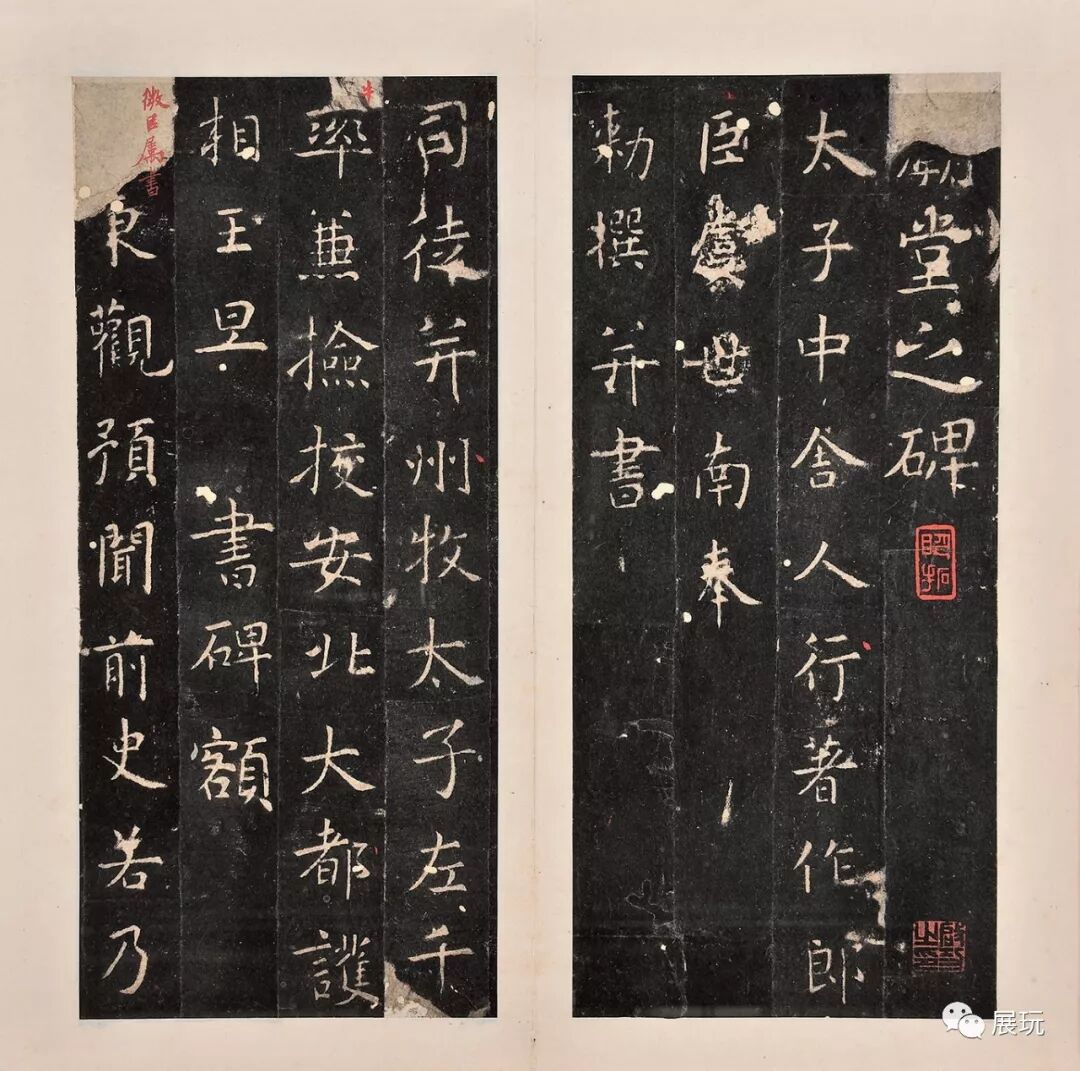 堂之碑
太子中舍人行著作郎
臣虞世南奉
勑撰并書
司徒并州牧太子左千
牛率兼撿挍安北大都護
相王旦 書碑額
微臣屬書東觀預聞前史若乃
展玩